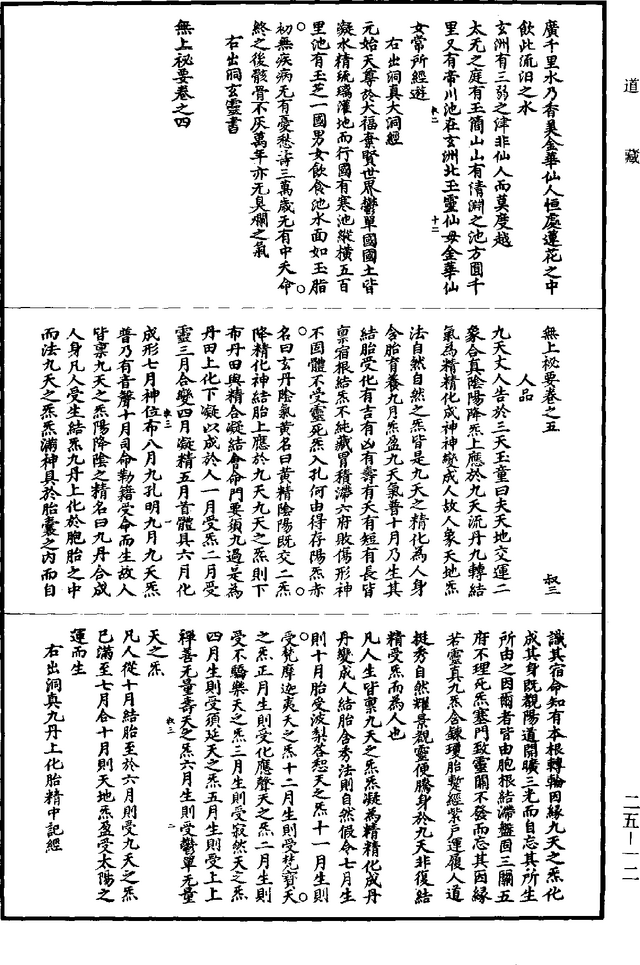 道藏
廣千里水乃香美金華仙人恒處蓮花之中
飲此流汨之水
玄洲有三弱之津非仙人而莫度越
太无之庭有玉簡山山有清淵之池方圓千
里又有帝川池在玄洲北玉靈仙母金華仙
女常所經遊
叔二
十二
右出洞真大洞經
元始天尊於大福棄賢世界鬱單國國土皆
凝水精琉璃灌地而行國有寒池縱橫五百
里池有玉芝一國男女飲食池水面如玉脂
初無疾病无有憂愁詩三萬歲无有中夭命
終之後骸骨不灰萬年亦无臭爛之氣
右出洞玄靈書
無上秘要卷之四
無上秘要卷之五
叔三
人品
九天丈人告於三天玉童曰夫天地交運二
象合真陰陽降炁上應於九天流丹九轉結
氣為精精化成神神變成人故人象天地炁
法自然自然之炁皆是九天之精化為人身
含胎育養九月炁盈九天氣普十月乃生其
結胎受化有吉有凶有壽有夭有短有長皆
禀宿根結炁不純藏胃積滯六府敗傷形神
不固體不受靈死炁入孔何由得存陽炁赤
名曰玄丹陰氣黃名曰黃精陰陽既交二炁
降精化神結胎上應於九天九天之炁則下
布丹田與精合凝結會命門要須九過是為
丹田上化下凝以成於人一月受炁二月受
靈三月合變四月凝精五月首體具六月化
成形七月神位布八月九孔明九月九天炁
叔三
一
普乃有音聲十月司命勒籍受命而生故人
皆禀九天之炁陽降陰之精名曰九丹合成
人身凡人受生結炁九丹上化於胞胎之中
而法九天之炁炁滿神具於胎囊之內而自
識其宿命知有本根轉輪因緣九天之炁化
成其身既覩陽道開曠三光而自忘其所生
所由之因爾者皆由胞根結滯盤固三關五
府不理死炁塞門致靈關不發而忘其因緣
若靈真九炁含鍊瓊胎蹔經紫戶運履人道
挺秀自然耀景觀靈便騰身於九天非復結
精受炁而為人也
凡人生皆禀九天之炁炁凝為精精化成丹
丹變成人結胎含秀法則自然假令七月生
則十月胎受波梨荅惒天之炁十一月生則
受梵摩迦夷天之炁十二月生則受梵寶天
之炁正月生則受化應聲天之炁二月生則
受不驕樂天之炁三月生則受寂然天之炁
四月生則受須延天之炁五月生則受上上
禪善无量壽天之炁六月生則受鬱單无量
叔三
二
天之炁
凡人從十月結胎至於六月則受九天之炁
已滿至七月合十月則天地炁盈受太陽之
運而生
右出洞真九丹上化胎精中記經
二五—一二